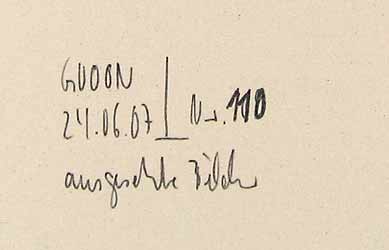 GUOON
24.06.07 | Nr. 110
ausgesetzte Bilder